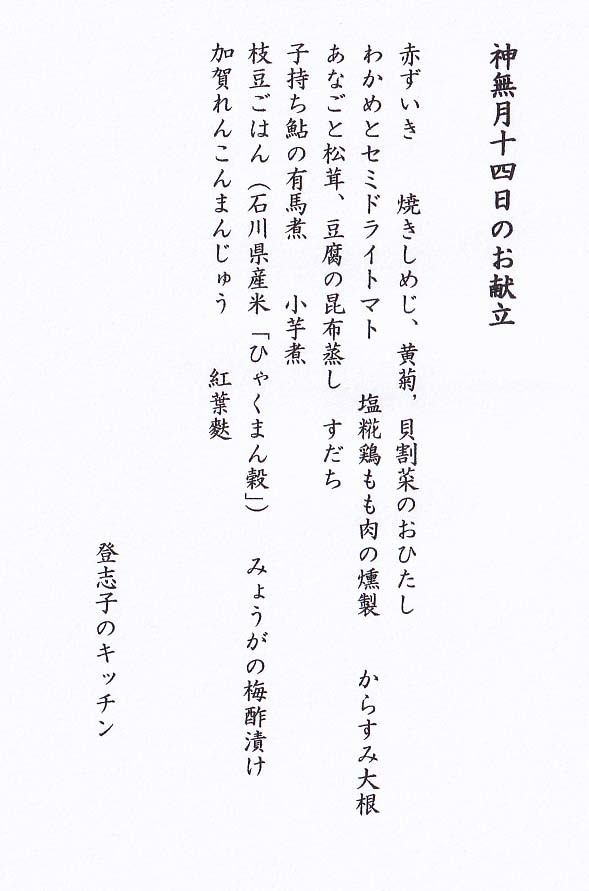 神無月十四日のお献立
赤ずいき　焼きしめじ、黄菊，貝割菜のおひたし
わかめとセミドライトマト　塩糀鶏もも肉の燻製　からすみ大根
あなごと松茸、豆腐の昆布蒸し　すだち
子持ち鮎の有馬煮　小芋煮
枝豆ごはん（石川県産米「ひゃくまん穀」）　みょうがの梅酢漬け
加賀れんこんまんじゅう　紅葉麩
登志子のキッチン